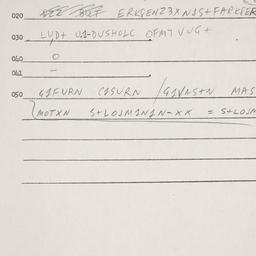 020 ERKGENZ3XN1S+FARKGER
030 LUD+ U1-DUSHOLC OFM7 VUG+
040 O
041 -
050 G1FURN C1SURN /G1VAS+N MAS
MOTXN S+LOJM1N1N-XX = S+LOJM